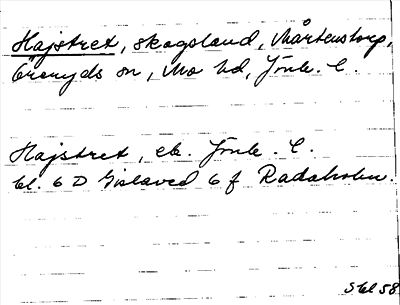 Hajstret, skogsland, Mårtenstorp,
Öreryds sn, Mo hd, Jönk. l.
Hajstret, ek. Jönk. l.
bl. 6 D Gislaved 6 f Radaholm.
Skl 58